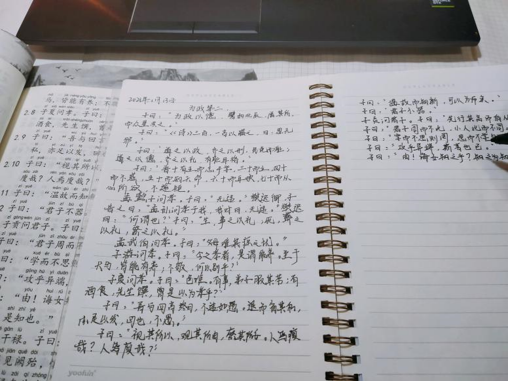 为政第二
子曰：“为政以德，譬如北辰，居其所，
而众星共之。”
子曰：“诗三百，一言以蔽之，曰：思无
邪。”
子曰：“道之以政，齐之以刑，民免而无耻；
道之以德，齐之以礼，有耻且格。”
子曰：“吾十有五而志于学，三十而立，四十
而不惑，五十而知天命，六十而耳顺，七十而从
心所欲，不逾矩。”
孟懿子问孝。子曰：“无违。”樊迟御，子
告之曰：“孟孙问孝于我，我对曰，无违。”樊迟
曰：“何谓也？”子曰：“生，事之以礼；死，葬之
以礼，祭之以礼。”
孟武伯问孝。子曰：“父母唯其疾之忧。”
子游问孝。子曰：“今之孝者，是谓能养。至于
犬马，皆能有养；不敬，何以别乎？”
子夏问孝。子曰：“色难。有事，弟子服其劳；有
酒食，先生馔，曾是以为孝乎？”
子曰：“吾与回言终日，不违如愚。退而省其私，
亦足以发，回也，不愚。”
子曰：“视其所以，观其所由，察其所安。人焉廋
哉？人焉廋哉？”
子曰：“温故而知新，可以为师矣。”
子曰：“君子不器。”
子贡问君子。子曰：“先行其言而后从
子曰：“君子周而不比，小人比而不周
子曰：“学而不思则罔，思而不学
子曰：“攻乎异端，斯害也已。”
子曰：“由！诲女知之乎？知之为知
2.8 子夏问孝。子曰：
酒食，先生馔，曾
2.9 子曰：“吾与回
私，亦足以发，
2.10 子曰：“视其所
廋哉？人焉廋哉？”
11 子曰：“温故而知
子曰：“君子不器
子贡问君子。子曰
子曰：“君子周而
子曰：“学而不思
子曰：“攻乎异端
子曰：“由！诲女
是知也。”
干禄。子曰
见阙殆，